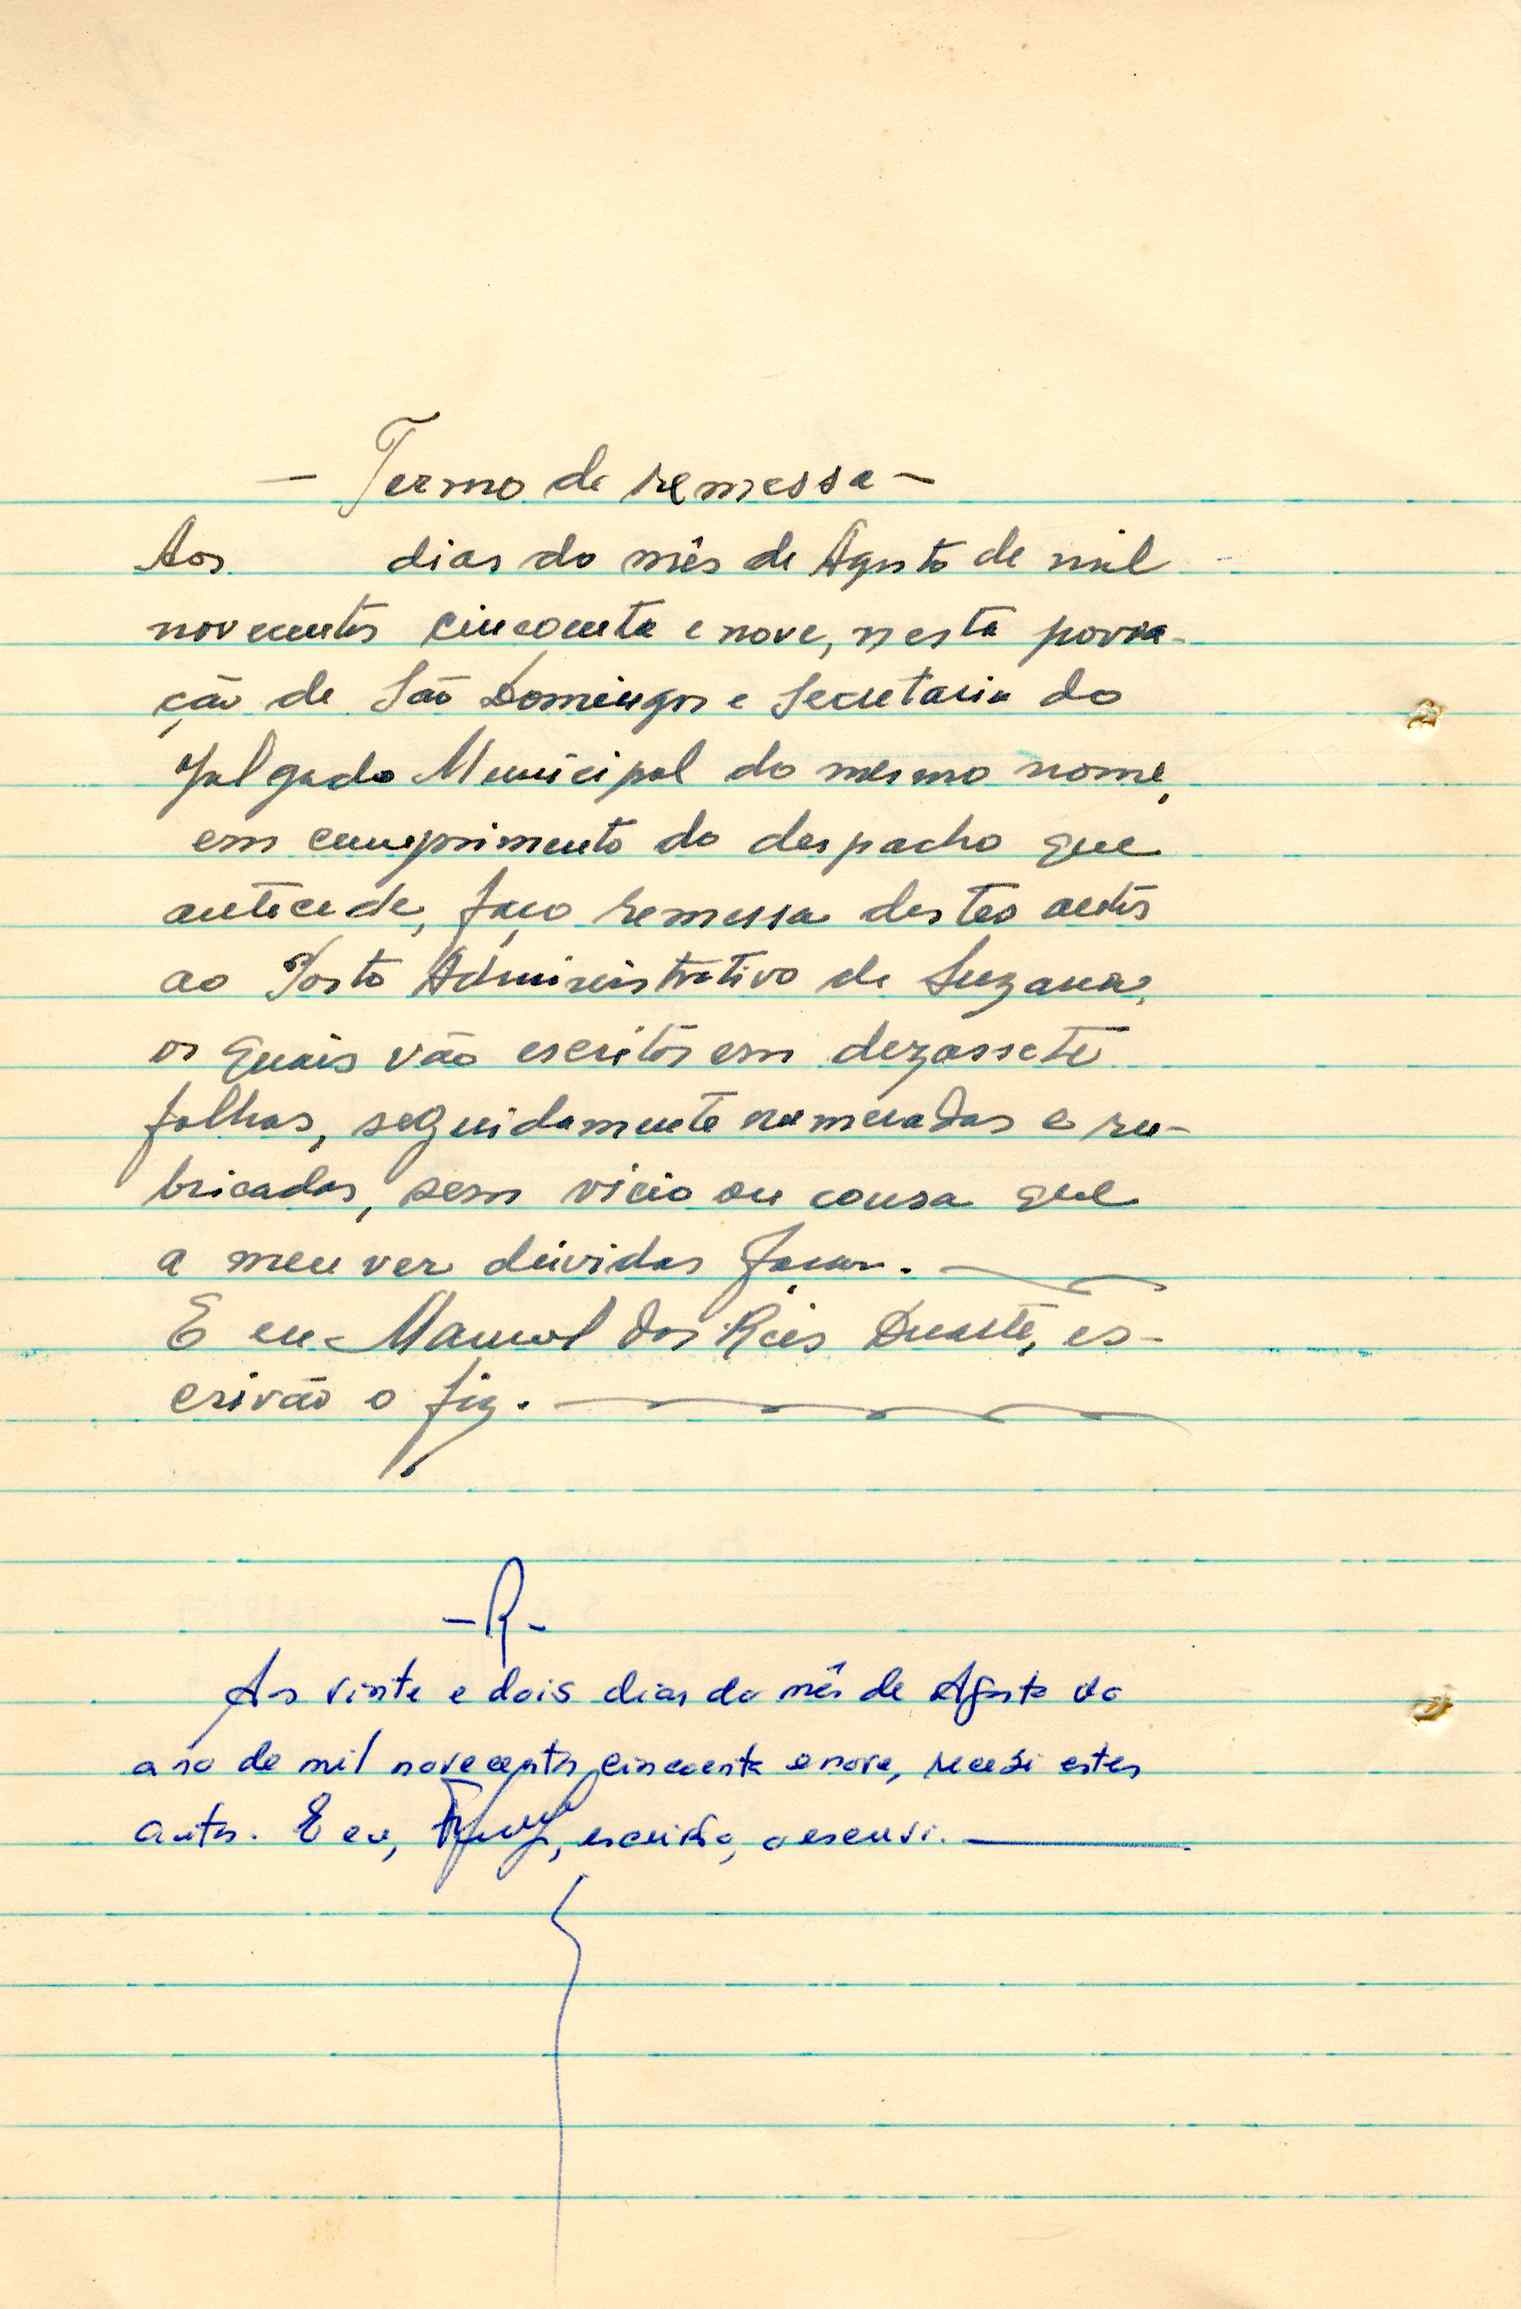 - Termo de remessa -
Aos dias do mês de Agosto de mil
novecentos cincoenta e nove, nesta povoa-
ção de São Domingos e Secretaria do
Julgado Municipal do mesmo nome,
em cumprimento do despacho que
antecede, faço remessa destes autos
ao Posto Administrativo de Suzana,
os quais vão escritos em dezassete
folhas, seguidamente numeradas e ru-
bricadas, sem vicio ou cousa que
a meu ver dúvidas faça.
E eu Manuel dos Reis Duarte, es-
crivão o fiz.
- R -
Aos vinte e dois dias do mês de Agosto do
ano de mil novecentos cincoenta e nove, recebi estes
autos. E eu, , escrivão, o escrevi.